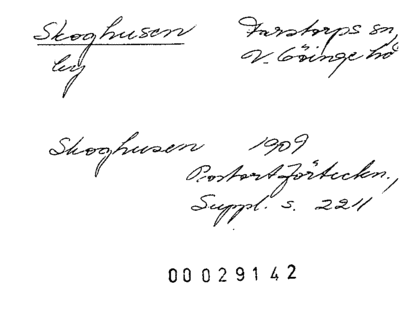 Skoghusen Farstorps sn,
by V. Göinge hd
Skoghusen 1909
Postortförteckn.,
Suppl. s. 2211
00029142